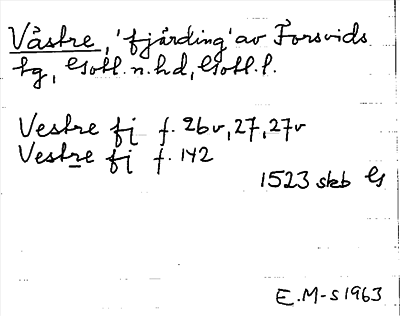 Västre, 'fjärding' av Forsvids
tg, Gotl. n. hd, Gotl. l.
Vestre fj f. 26v, 27, 27v
Vestre fj f. 142
1523 skb G
E.M-s 1963